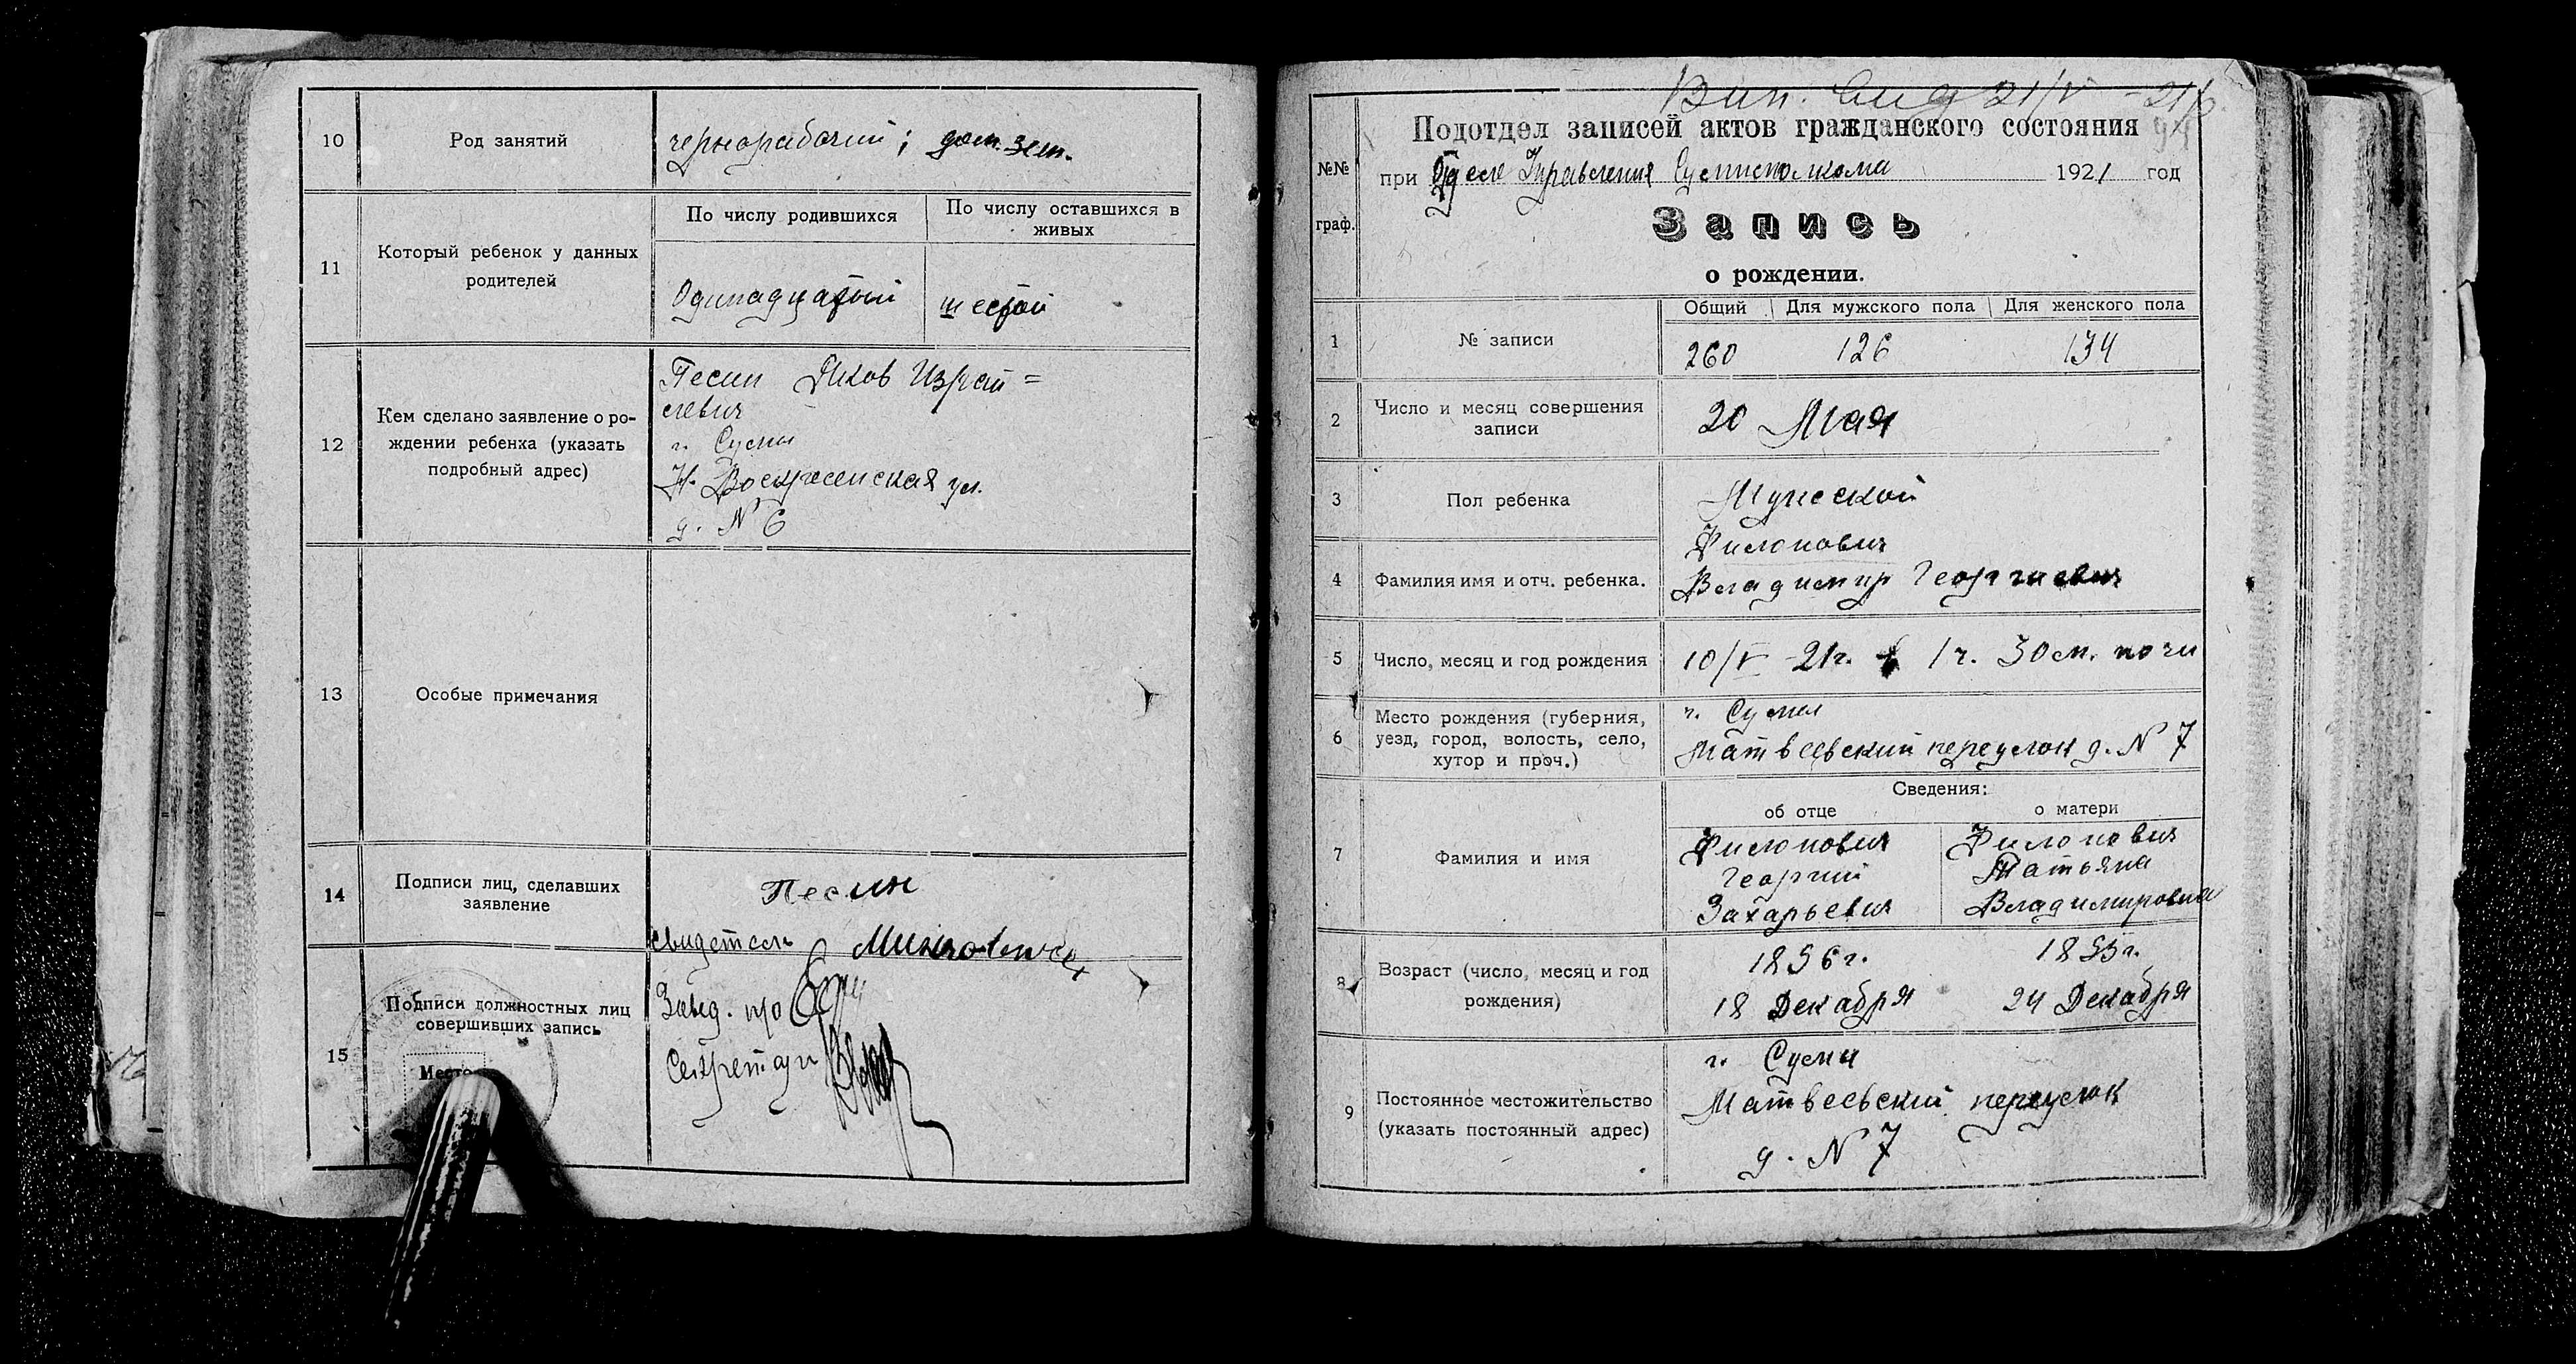 10
Род занятий
чернорабочий; дом. зем.
11
Который ребенок у данных
родителей
По числу родившихся
По числу оставшихся в
живых
Одинадцатый
шестой
12
Кем сделано заявление о ро-
ждении ребенка (указать
подробный адрес)
Песин Яков Израи=
левич
г. Сумы
Н. Воскресенская ул.
д. N 6
13
Особые примечания
14
Подписи лиц, сделавших
заявление
Песин
свидетель
15
Подписи должностных лиц
совершивших запись
Место
Завед. п/о
Секретарь
Вып. 21/V -21г.
94
Подотдел записей актов гражданского состояния
при Отделе Управления Сумисполкома 1921 год
№№
граф.
Запись
о рождении.
1
№ записи
Общий
Для мужского пола
Для женского пола
260
126
134
2
Число и месяц совершения
записи
20 Мая
3
Пол ребенка
Мужской
4
Фамилия имя и отч. ребенка.
Филонович
Владимир Георгиевич
5
Число, месяц и год рождения
10/V -21г. 1ч. 30м. ночи
6
Место рождения (губерния,
уезд, город, волость, село,
хутор и проч.)
г. Сумы
Матвеевский переулок д. N 7
Сведения:
об отце
о матери
7
Фамилия и имя
Филонович
Георгий
Захарьевич
Филонович
Татьяна
Владимировна
8
Возраст (число, месяц и год
рождения)
18 Декабря
24 Декабря
9
Постоянное местожительство
(указать постоянный адрес)
г. Сумы
Матвеевский переулок
д. N 7